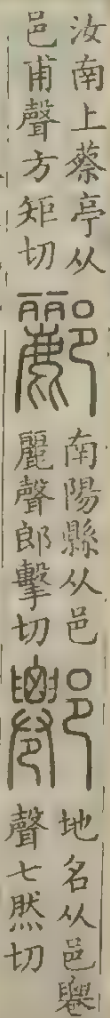 汝南上蔡亭从
邑甫聲方矩切
酈
南陽縣从邑
麗聲郎擊切
地名从邑䙴
聲七然切